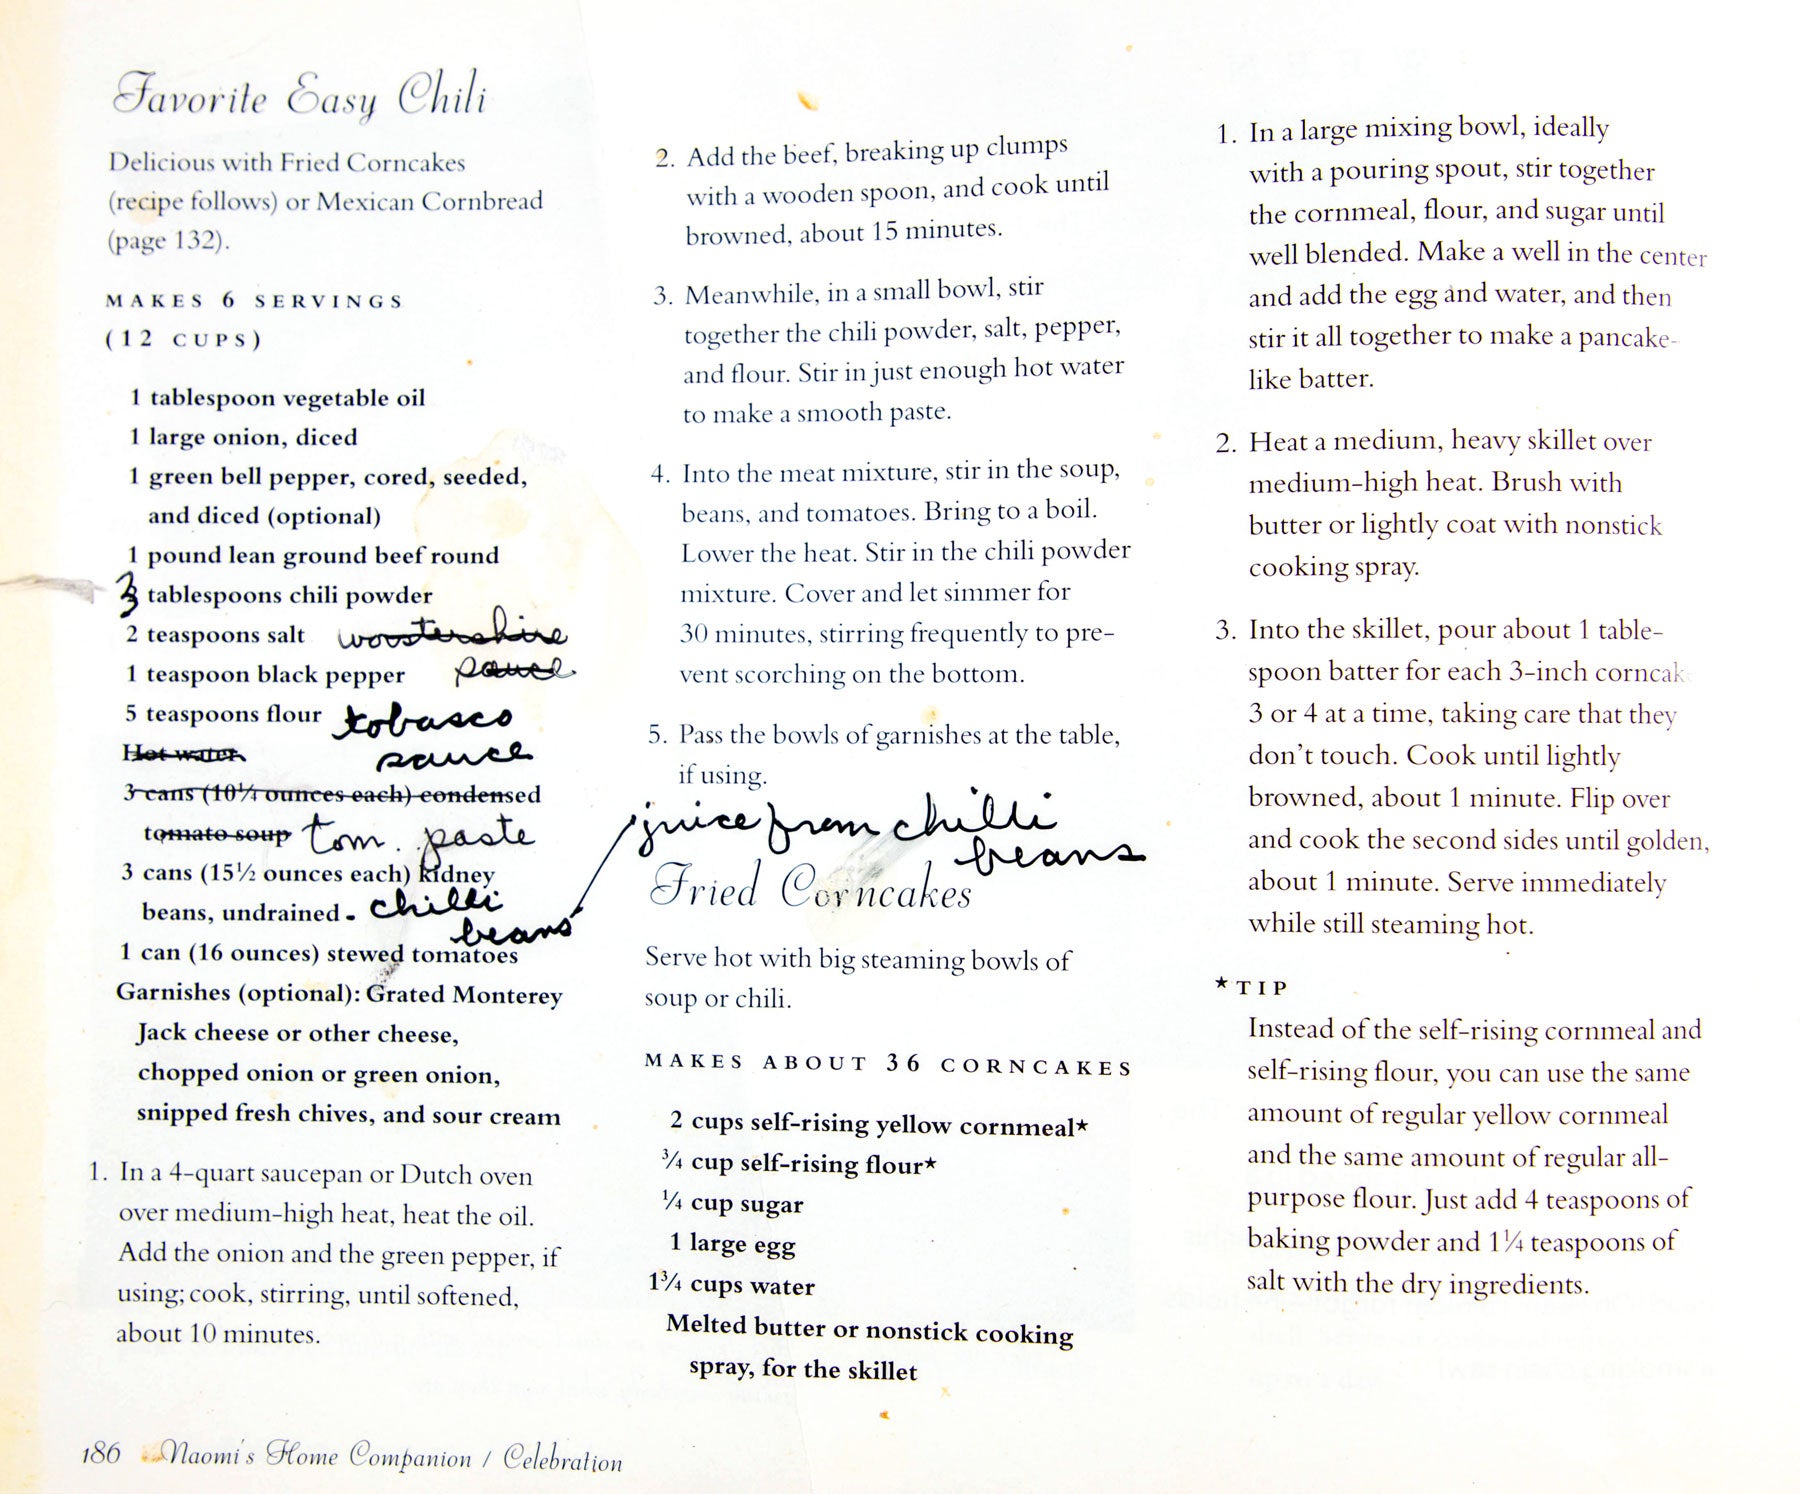 Favorite Easy Chili
Delicious with Fried Corncakes
(recipe follows) or Mexican Cornbread
(page 132).
MAKES 6 SERVINGS
(12 CUPS)
1 tablespoon vegetable oil
1 large onion, diced
1 green bell pepper, cored, seeded,
and diced (optional)
1 pound lean ground beef round
3 tablespoons chili powder
2 teaspoons salt woostershire
1 teaspoon black pepper sauce
5 teaspoons flour tobasco
Hot water sauce
3 cans (10¼ ounces each) condensed
tomato soup tom. paste
3 cans (15½ ounces each) kidney
beans, undrained - chilli
beans
1 can (16 ounces) stewed tomatoes
Garnishes (optional): Grated Monterey
Jack cheese or other cheese,
chopped onion or green onion,
snipped fresh chives, and sour cream
1. In a 4-quart saucepan or Dutch oven
over medium-high heat, heat the oil.
Add the onion and the green pepper, if
using; cook, stirring, until softened,
about 10 minutes.
2. Add the beef, breaking up clumps
with a wooden spoon, and cook until
browned, about 15 minutes.
3. Meanwhile, in a small bowl, stir
together the chili powder, salt, pepper,
and flour. Stir in just enough hot water
to make a smooth paste.
4. Into the meat mixture, stir in the soup,
beans, and tomatoes. Bring to a boil.
Lower the heat. Stir in the chili powder
mixture. Cover and let simmer for
30 minutes, stirring frequently to pre-
vent scorching on the bottom.
5. Pass the bowls of garnishes at the table,
if using.
juice from chilli
beans
Fried Corncakes
Serve hot with big steaming bowls of
soup or chili.
MAKES ABOUT 36 CORNCAKES
2 cups self-rising yellow cornmeal★
¾ cup self-rising flour★
¼ cup sugar
1 large egg
1¾ cups water
Melted butter or nonstick cooking
spray, for the skillet
1. In a large mixing bowl, ideally
with a pouring spout, stir together
the cornmeal, flour, and sugar until
well blended. Make a well in the center
and add the egg and water, and then
stir it all together to make a pancake-
like batter.
2. Heat a medium, heavy skillet over
medium-high heat. Brush with
butter or lightly coat with nonstick
cooking spray.
3. Into the skillet, pour about 1 table-
spoon batter for each 3-inch corncak
3 or 4 at a time, taking care that they
don't touch. Cook until lightly
browned, about 1 minute. Flip over
and cook the second sides until golden,
about 1 minute. Serve immediately
while still steaming hot.
★TIP
Instead of the self-rising cornmeal and
self-rising flour, you can use the same
amount of regular yellow cornmeal
and the same amount of regular all-
purpose flour. Just add 4 teaspoons of
baking powder and 1¼ teaspoons of
salt with the dry ingredients.
186 Naomi's Home Companion / Celebration